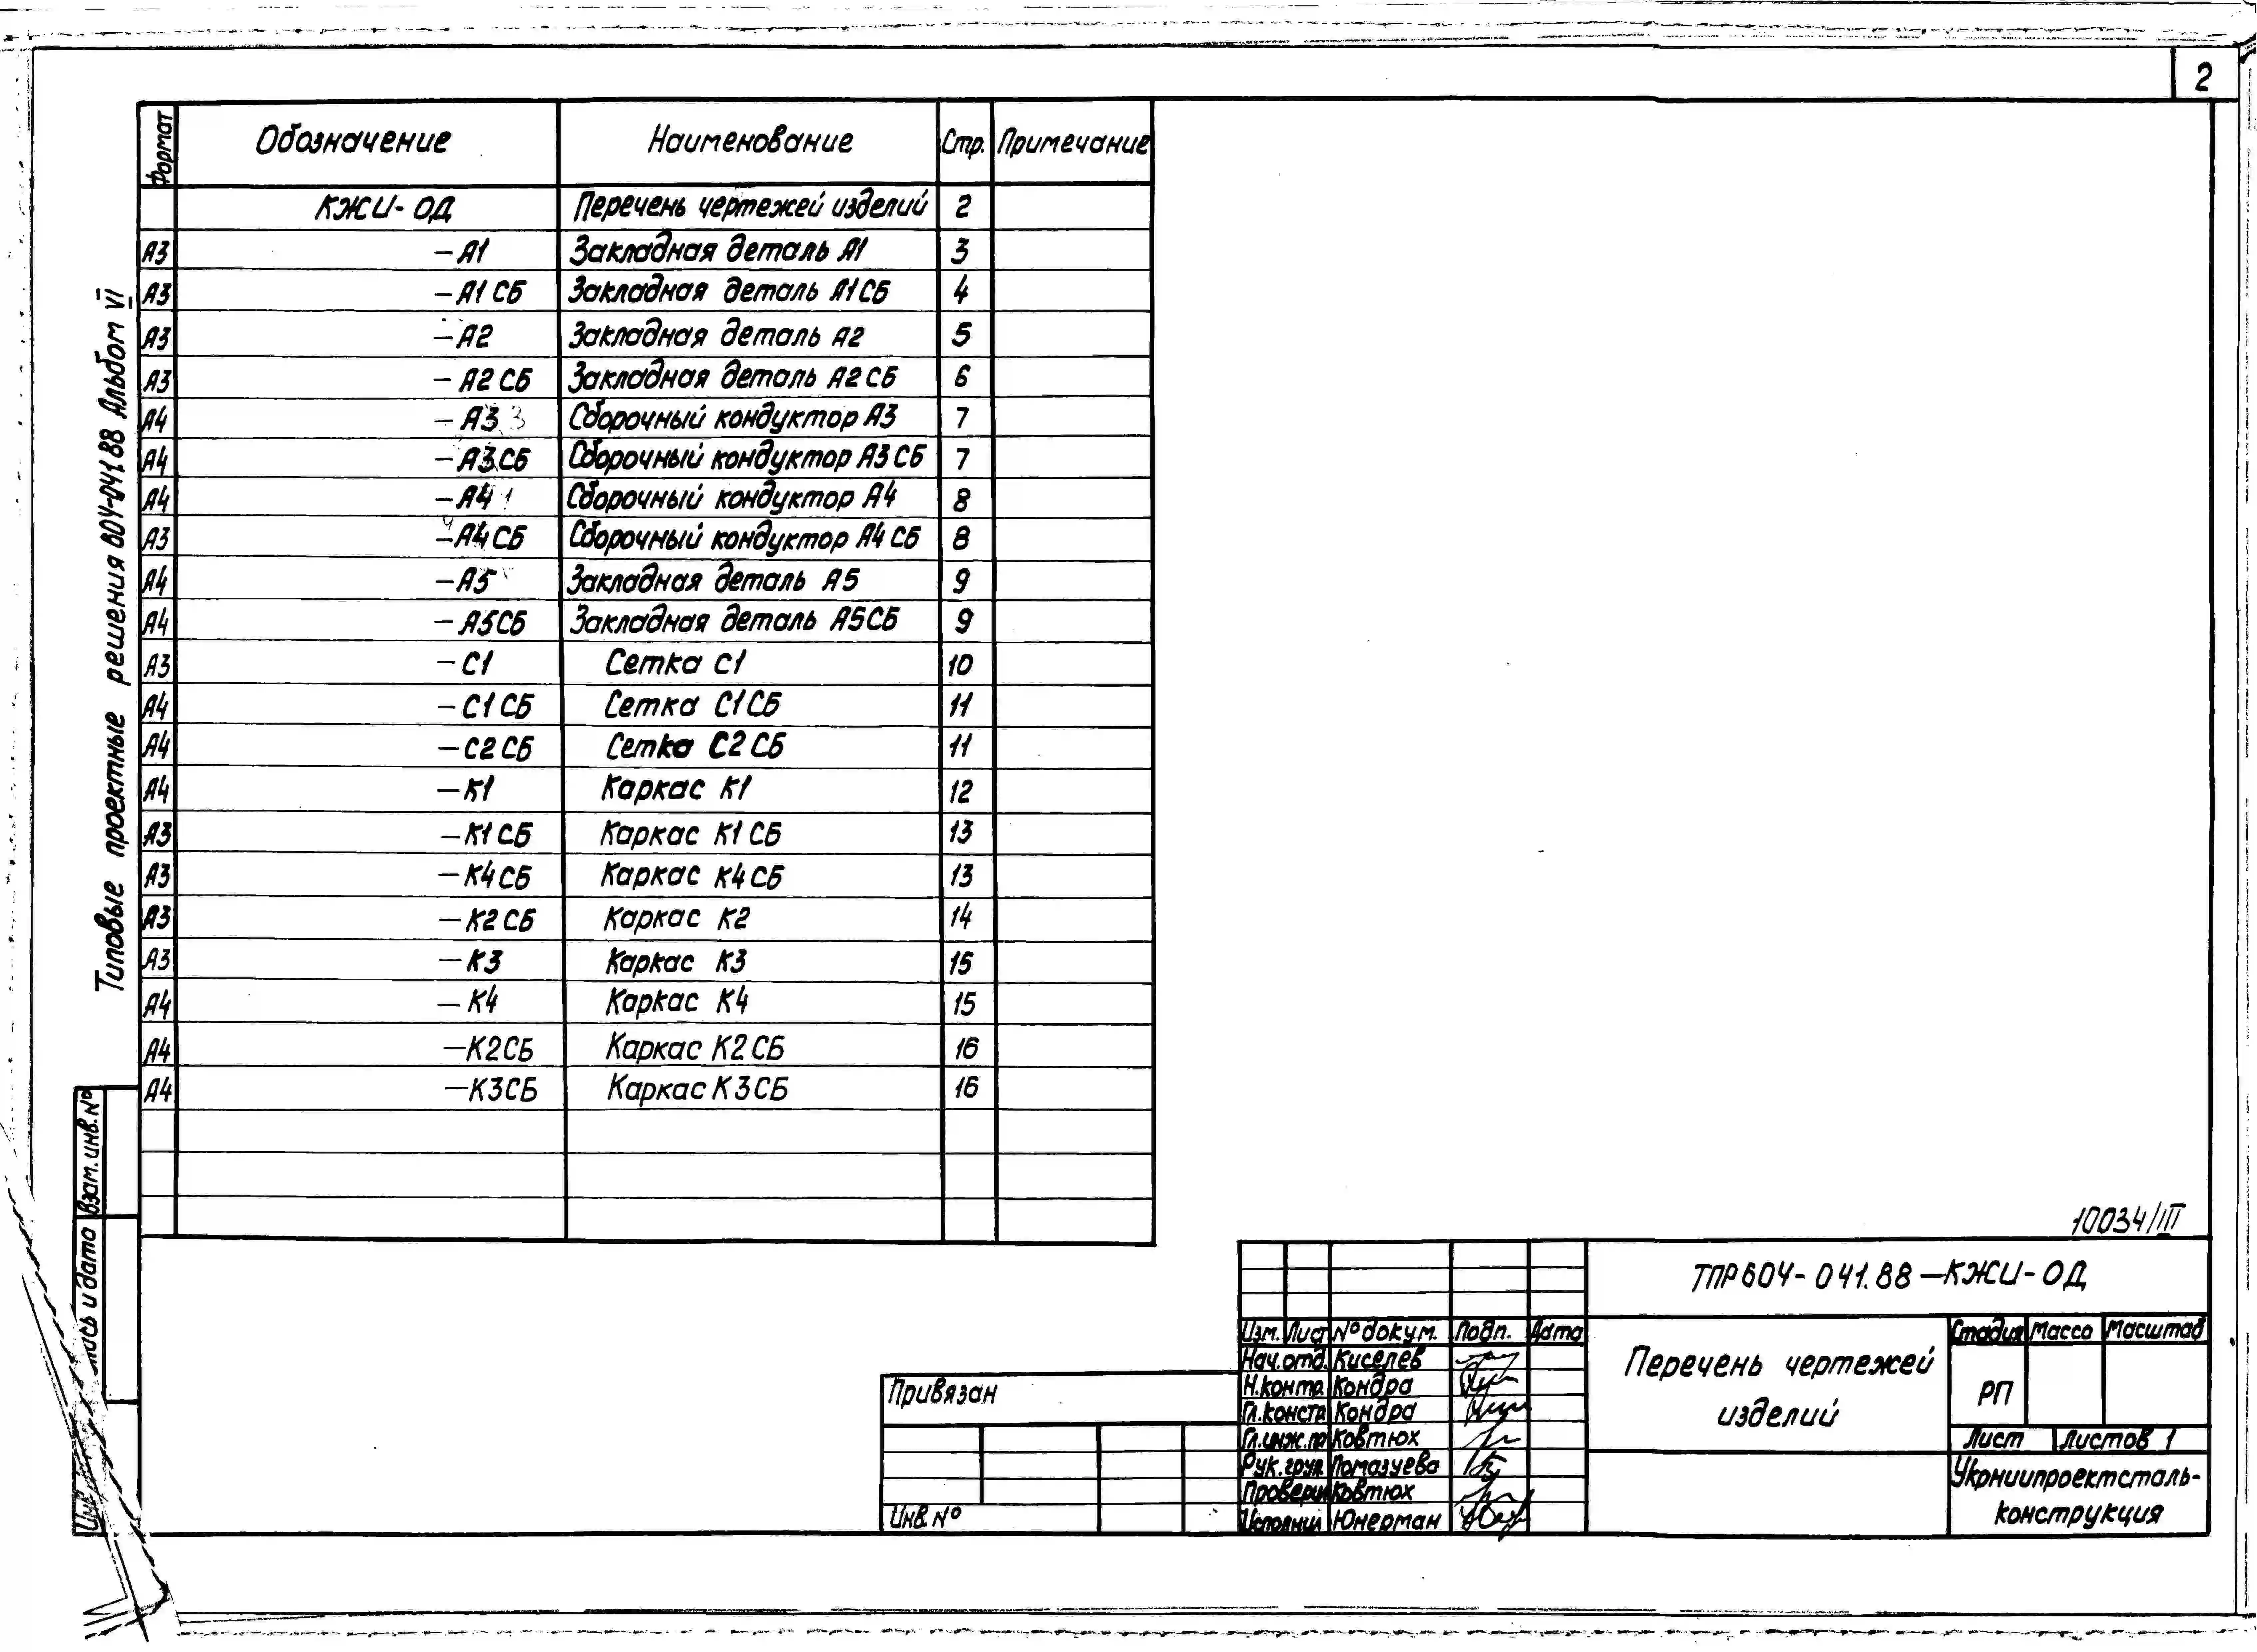 2
Формат Обозначение Наименование Стр. Примечание
КЖИ-ОД Перечень чертежей изделий 2
А3 -А1 Закладная деталь А1 3
А3 -А1 СБ Закладная деталь А1СБ 4
А3 -А2 Закладная деталь А2 5
А3 -А2 СБ Закладная деталь А2СБ 6
А4 -А3 Сборочный кондуктор А3 7
А4 -А3СБ Сборочный кондуктор А3 СБ 7
А4 -А4 Сборочный кондуктор А4 8
А3 -А4СБ Сборочный кондуктор А4 СБ 8
А4 -А5 Закладная деталь А5 9
А4 -А5СБ Закладная деталь А5СБ 9
А3 -С1 Сетка С1 10
А4 -С1 СБ Сетка С1СБ 11
А4 -С2 СБ Сетка С2 СБ 11
А4 -К1 Каркас К1 12
А3 -К1 СБ Каркас К1 СБ 13
А3 -К4СБ Каркас К4СБ 13
А3 -К2 СБ Каркас К2 14
А3 -К3 Каркас К3 15
А4 -К4 Каркас К4 15
А4 -К2СБ Каркас К2 СБ 16
А4 -К3СБ Каркас К3СБ 16
Типовые проектные решения 604-041.88 Альбом VI
Взам. инв. №
10034/III
ТПР604-041.88-КЖИ-ОД
Изм. Лист № докум. Подп. Дата
Нач.отд. Киселев
Н.контр. Кондра
Гл.констр Кондра
Гл.инж.пр Ковтюх
Рук.груп. Помазуева
Проверил Ковтюх
Исполнил Юнерман
Перечень чертежей
изделий
Стадия Масса Масштаб
РП
Лист Листов 1
Укрниипроектсталь-
конструкция
Привязан
Инв. №